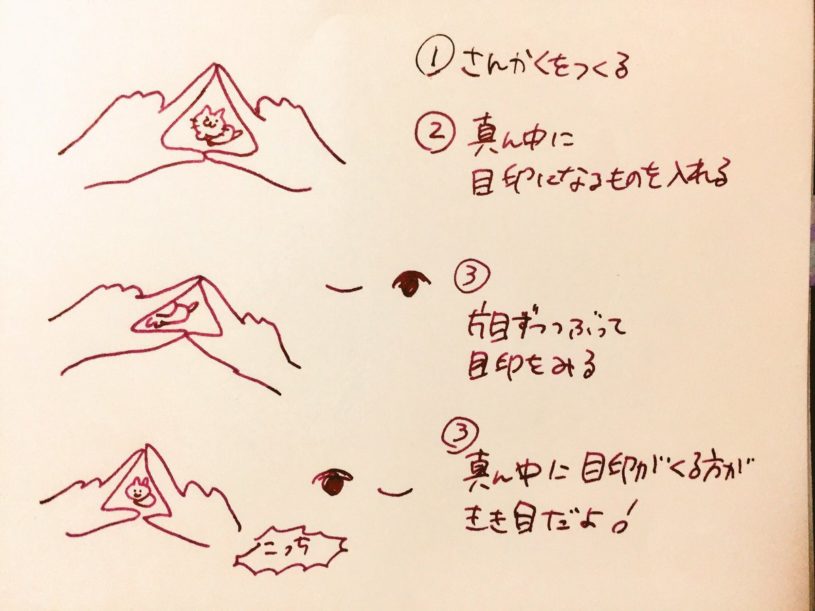 ① さんかくをつくる
② 真ん中に
目印になるものを入れる
③
片目ずつつぶって
目印をみる
③
真ん中に目印がくる方が
きき目だよ!
こっち